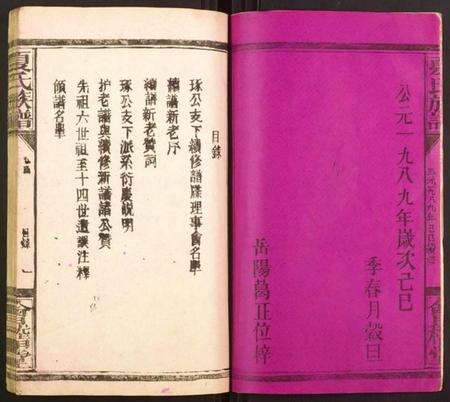 公元一九八九年歲次己巳
季春月穀旦
岳陽葛正位梓
目錄
琢公支下續修譜牒理事會名單
續譜新老序
續譜新老贊詞
琢公支下派系衍慶說明
护老譜與續修新譜諸公贊
先祖六世祖至十四世遺誤注釋
領譜名單
夏氏族譜
目錄
一